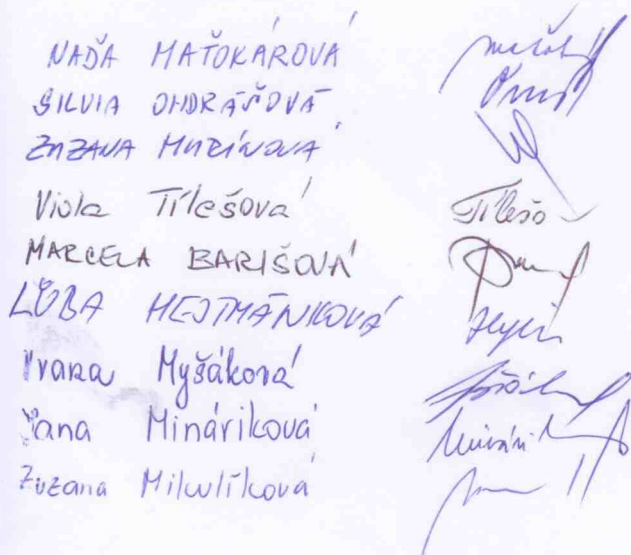 NAĎA MAŤOKÁROVÁ
SILVIA ONDRÁŠOVÁ
ZUZANA MURÍNOVÁ
Viola Tílešová Tílešo
MARCELA BARIŠOVÁ
ĽUBA HEJTMÁNIKOVÁ
Ivana Myšáková
Jana Mináriková
Zuzana Mikulíková